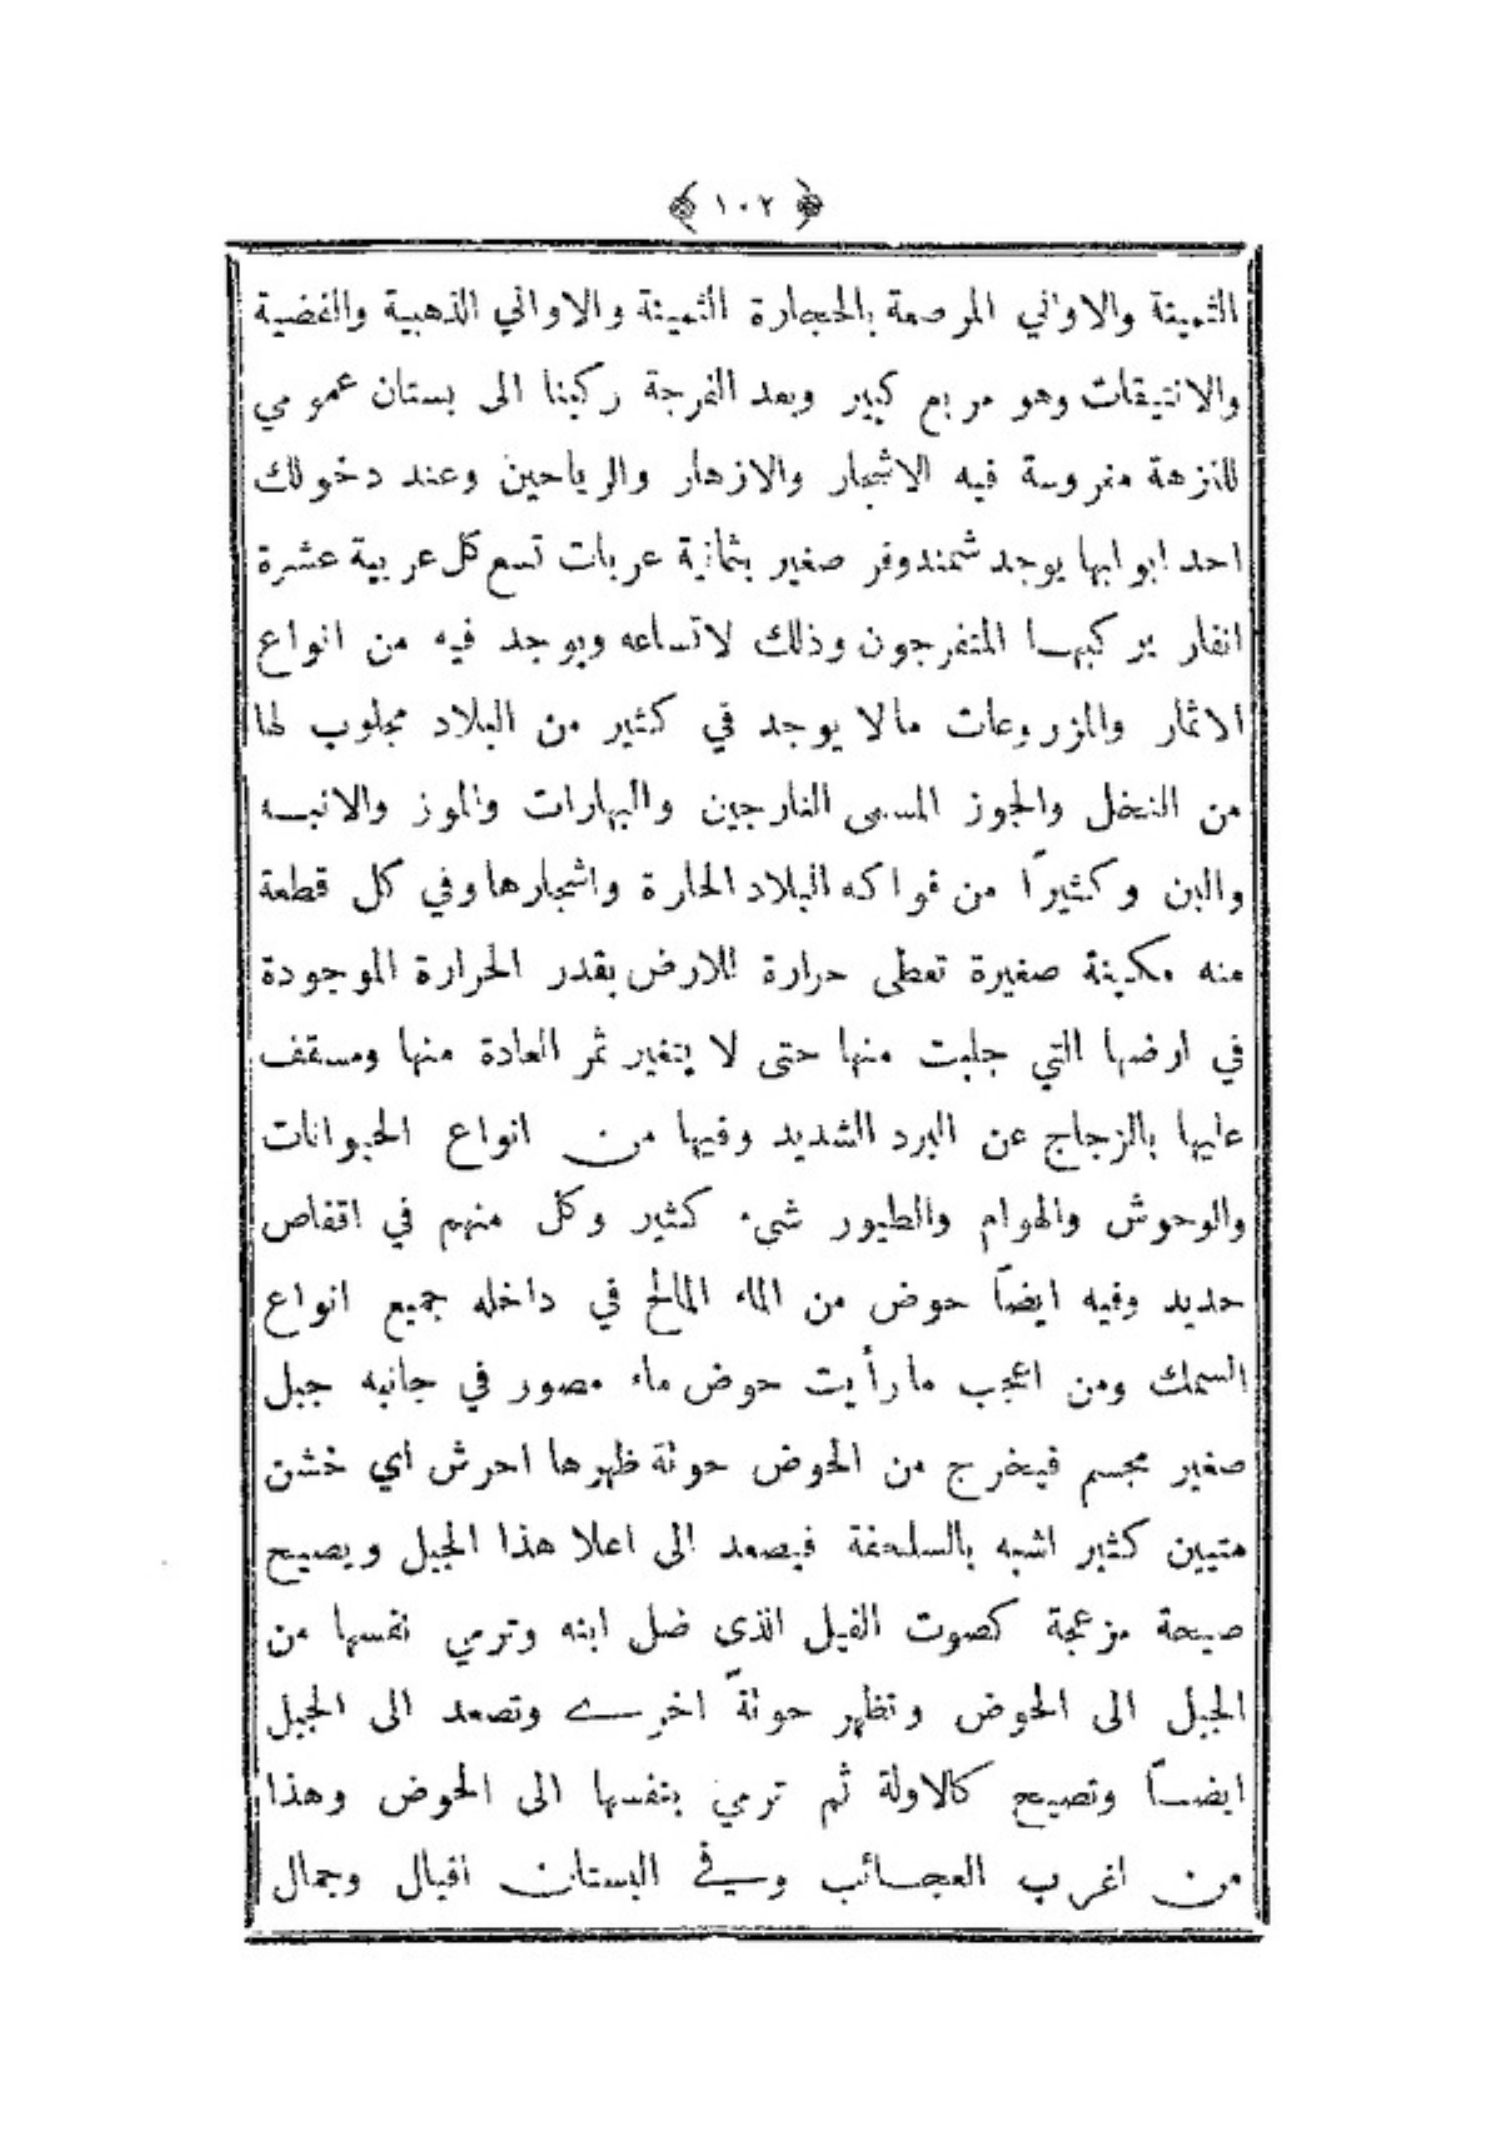 ﴿ ١٠٢ ﴾
الثمينة والاواني المرصعة بالحجارة الثمينة والاواني الذهبية والفضية
والانتيقات وهو مربع كبير وبعد الفرجة ركبنا الى بستان عمومي
للنزهة مغروسة فيه الاشجار والازهار والرياحين وعند دخولك
احد ابوابها يوجد شمندوفر صغير بثمانية عربات تسع كل عربية عشرة
انفار يركبها المتفرجون وذلك لاتساعه ويوجد فيه من انواع
الاثمار والمزروعات مالا يوجد في كثير من البلاد مجلوب لها
من النخل والجوز المسمى النارجين والبهارات والموز والانبه
والبن وكثيرًا من فواكه البلاد الحارة واشجارها وفي كل قطعة
منه مكينة صغيرة تعطى حرارة للارض بقدر الحرارة الموجودة
في ارضها التي جلبت منها حتى لا يتغير ثمر العادة منها ومسقف
عليها بالزجاج عن البرد الشديد وفيها من انواع الحيوانات
والوحوش والهوام والطيور شيء كثير وكل منهم في اقفاص
حديد وفيه ايضًا حوض من الماء المالح في داخله جميع انواع
السمك ومن اعجب ما رأيت حوض ماء مصور في جانبه جبل
صغير مجسم فيخرج من الحوض حوتة ظهرها احرش اي خشن
متيين كثير اشبه بالسلحفة فيصعد الى اعلا هذا الجبل ويصيح
صيحة مزعجة كصوت الفيل الذى ضل ابنه وترمي نفسها من
الجبل الى الحوض وتظهر حوتةً اخرى وتصعد الى الجبل
ايضًا وتصيح كالاولة ثم ترمي بنفسها الى الحوض وهذا
من اغرب العجائب وفي البستان افيال وجمال